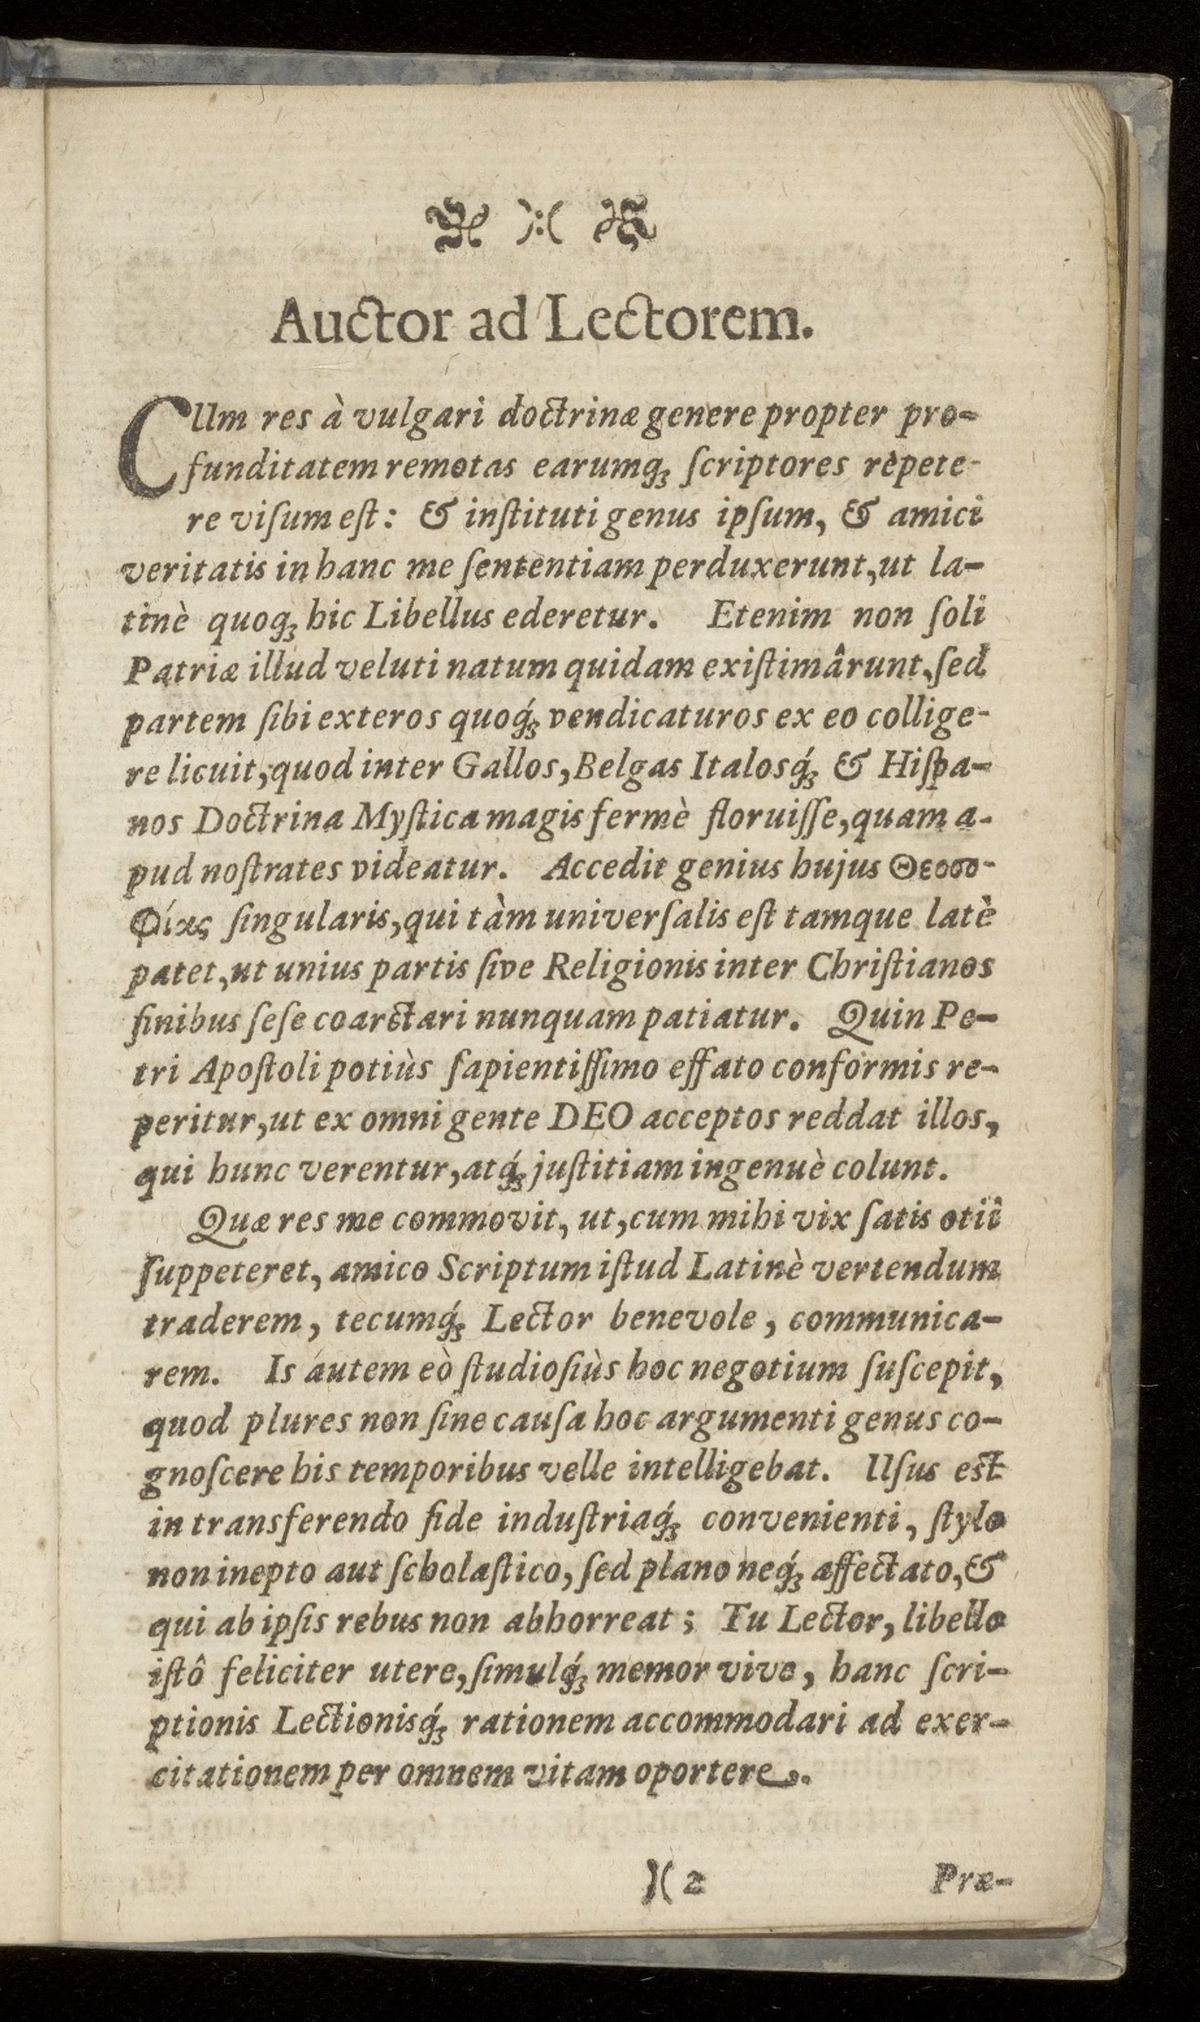 Auctor ad Lectorem.
CUm res à vulgari doctrinæ genere propter pro-
funditatem remotas earumq́ꝫ ſcriptores repete-
re viſum eſt: & inſtituti genus ipſum, & amici
veritatis in hanc me ſententiam perduxerunt, ut la-
tinè quoqꝫ hic Libellus ederetur. Etenim non ſoli
Patriæ illud veluti natum quidam exiſtimârunt, ſed
partem ſibi exteros quoq́ꝫ vendicaturos ex eo collige-
re licuit, quod inter Gallos, Belgas Italosq́ꝫ & Hiſpa-
nos Doctrina Myſtica magis fermè floruiſſe, quam a-
pud noſtrates videatur. Accedit genius hujus Θεοσο-
φίας ſingularis, qui tàm univerſalis eſt tamque latè
patet, ut unius partis ſive Religionis inter Chriſtianos
finibus ſeſe coarctari nunquam patiatur. Quin Pe-
tri Apoſtoli potiùs ſapientiſſimo effato conformis re-
peritur, ut ex omni gente DEO acceptos reddat illos,
qui hunc verentur, atq́ꝫ juſtitiam ingenuè colunt.
Quæ res me commovit, ut, cum mihi vix ſatis otii
ſuppeteret, amico Scriptum iſtud Latinè vertendum
traderem, tecumq́ꝫ Lector benevole, communica-
rem. Is autem eò ſtudioſiùs hoc negotium ſuſcepit,
quod plures non ſine cauſa hoc argumenti genus co-
gnoſcere his temporibus velle intelligebat. Uſus eſt
in transferendo fide induſtriaq́ꝫ convenienti, ſtylo
non inepto aut ſcholaſtico, ſed plano neq́ꝫ affectato, &
qui ab ipſis rebus non abhorreat; Tu Lector, libello
iſtô feliciter utere, ſimulq́ꝫ memor vive, hanc ſcri-
ptionis Lectionisq́ꝫ rationem accommodari ad exer-
citationem per omnem vitam oportere.
)( 2 Præ-